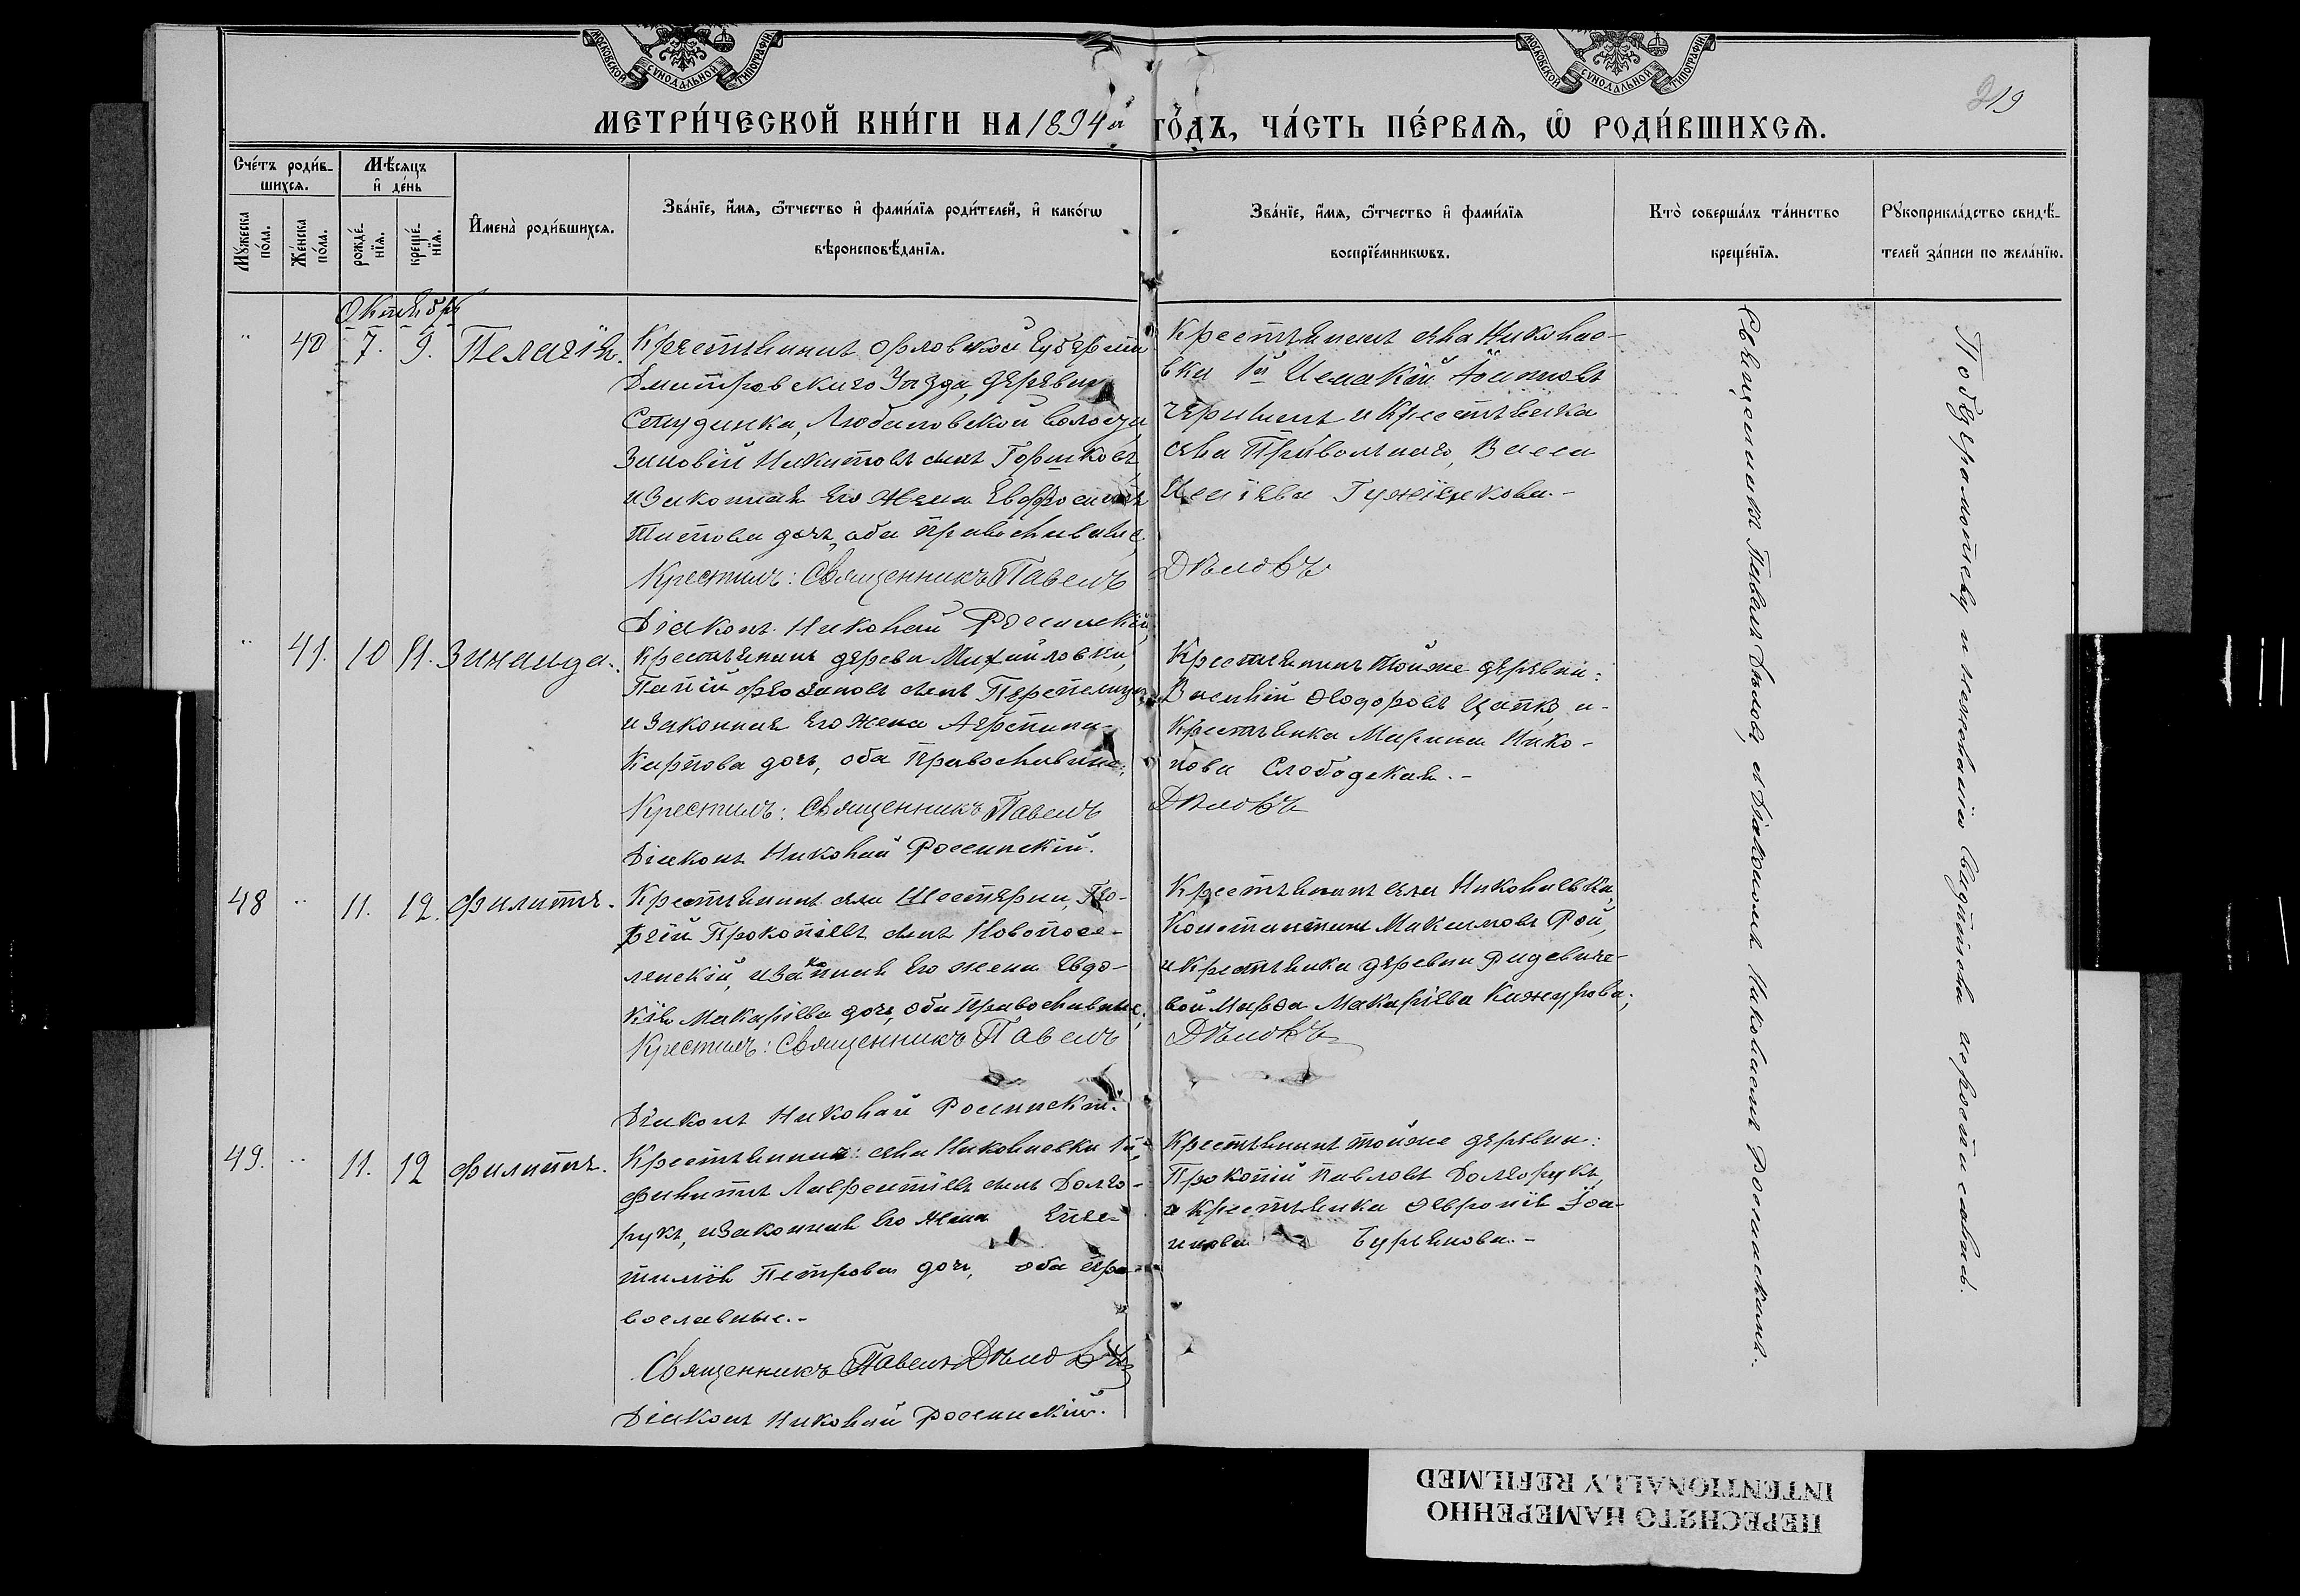 МОСКОВСКОЙ СѴНОДАЛЬНОЙ ТИПОГРАФІИ
МОСКОВСКОЙ СѴНОДАЛЬНОЙ ТИПОГРАФІИ
219
МЕТРИ́ЧЕСКОЙ КНИ́ГИ НА 1894й ГО́ДЪ, ЧА́СТЬ ПЕ́РВАЯ, Ѿ РОДИ́ВШИХСЯ.
Сче́тъ роди́в-
шихся.
Му́жеска по́ла.
Же́нска по́ла.
Мѣ́сяцъ и де́нь
рожде́нїя.
креще́нїя.
Имена̀ роди́вшихся.
Зва́нїе, и́мя, ѻ҆́тчество и фами́лїя роди́телей, и како́гѡ
вѣроисповѣ́данїя.
Зва́нїе, и́мя, ѻ҆́тчество и фами́лїя
воспрїе́мникѡвъ.
Кто̀ соверша́лъ та́инство
креще́нїя.
Рꙋкоприкла́дство свидѣ́-
телей за́писи по жела́нїю.
Октябрь
" 40 7. 9. Пелагія.
Крестьянинъ Орловской Губерніи
Дмитровскаго Уѣзда, деревни
Студинка, Любановской волости
Зиновій Никитовъ сынъ Горшковъ
и Законная его жена Евфросинія
Титова дочь, оба православные.
Крестилъ: Священникъ Павелъ
Діаконъ Николай Россинскій.
Крестьянинъ села Николае-
вки 1й Исаакій Іоанновъ
и Крестьянка
села Привольнаго, Васса
Дѣловъ
" 41. 10 11. Зинаида.
Крестьянинъ деревни Михайловки,
сынъ Перепелица
и Законная его жена Агриппина
Карпова дочь, оба православные;
Крестилъ: Священникъ Павелъ
Діаконъ Николай Россинскій.
Крестьянинъ тойже деревни:
Василій Ѳеодоровъ Цапко, и
Крестьянка Марина Нико-
нова Слободская.-
Дѣловъ
48 " 11. 12. Филиппъ.
Крестьянинъ села Шестерни, Гео-
ргій Прокопіевъ сынъ Новопосе-
ленскій, и Законная его жена Евдо-
кія Макаріева дочь, оба православные;
Крестилъ: Священникъ Павелъ
Діаконъ Николай Россинскій.
Крестьянинъ села Николаевки,
Константинъ Максимовъ Рой,
и Крестьянка деревни
Марѳа Макаріева Кажурова;
Дѣловъ
49. " 11. 12 Филиппъ.
Крестьянинъ: села Николаевки 1й,
Филиппъ Лаврентіевъ сынъ Долго-
рукъ, и Законная его жена Епис-
тимія Петрова дочь, оба пра-
вославные.-
Священникъ Павелъ Дѣловъ
Діаконъ Николай Россинскій.
Крестьянинъ тойже деревни:
Прокопій Павловъ Долгорукъ,
и Крестьянка Ѳевронія Іоа-
ннова Бурьянова.-
Священникъ Павелъ Дѣловъ, съ Діакономъ Николаемъ Россинскимъ.
ПЕРЕСНЯТО НАМЕРЕННО
INTENTIONALLY REFILMED